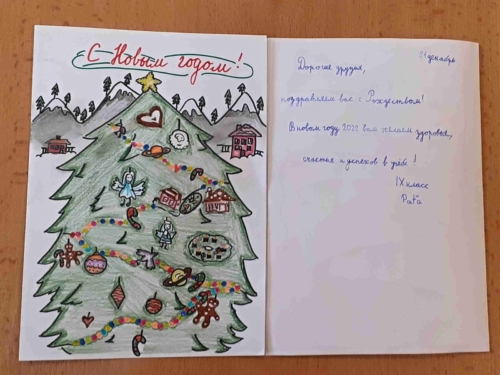 С Новым годом!
21 декабрь
Дорогие друзья,
поздравляем вас с Рождеством!
В новом году 2022 вам желаем здоровья,
счастья и успехов в учёбе!
IX класс